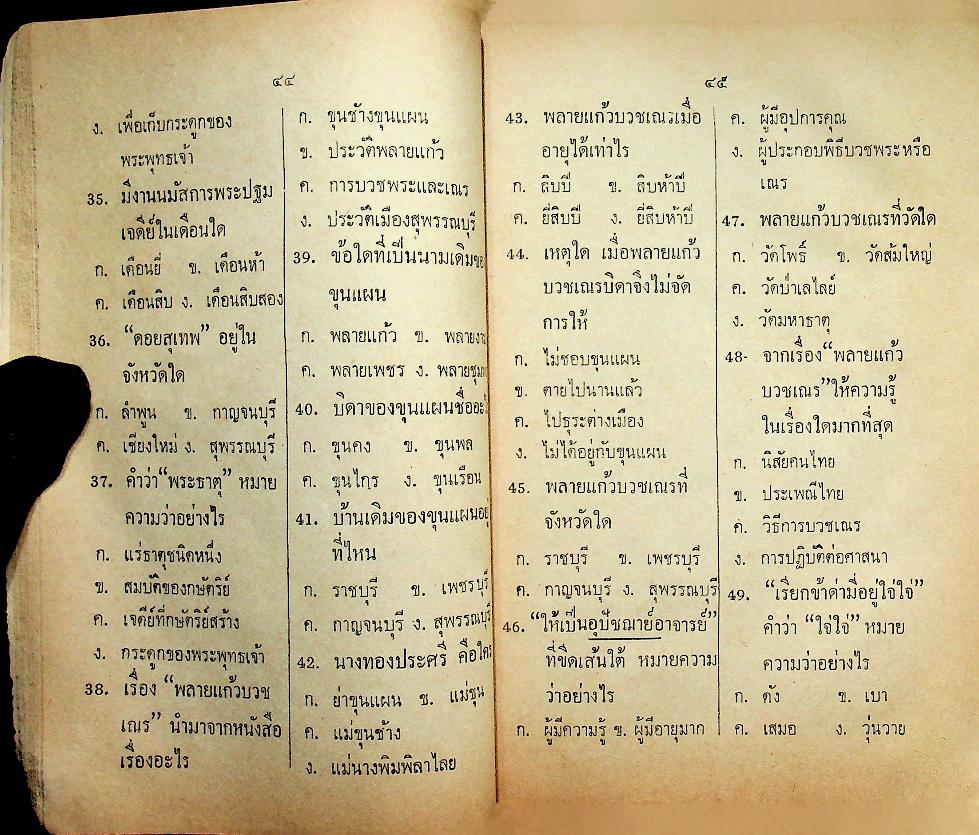 ๔๔
ง. เพื่อเก็บกระดูกของ
พระพุทธเจ้า
35. มีงานนมัสการพระปฐม
เจดีย์ในเดือนใด
ก. เดือนยี่ ข. เดือนห้า
ค. เดือนสิบ ง. เดือนสิบสอง
36. “ดอยสุเทพ” อยู่ใน
จังหวัดใด
ก. ลำพูน ข. กาญจนบุรี
ค. เชียงใหม่ ง. สุพรรณบุรี
37. คำว่า“พระธาตุ” หมาย
ความว่าอย่างไร
ก. แร่ธาตุชนิดหนึ่ง
ข. สมบัติของกษัตริย์
ค. เจดีย์ที่กษัตริย์สร้าง
ง. กระดูกของพระพุทธเจ้า
38. เรื่อง “พลายแก้วบวช
เณร” นำมาจากหนังสือ
เรื่องอะไร
ก. ขุนช้างขุนแผน
ข. ประวัติพลายแก้ว
ค. การบวชพระและเณร
ง. ประวัติเมืองสุพรรณบุรี
39. ข้อใดที่เป็นนามเดิม
ขุนแผน
ก. พลายแก้ว ข.
ค. พลายเพชร ง.
40. บิดาของขุนแผนชื่อ
ก. ขุนคง ข. ขุนพล
ค. ขุนไกร ง. ขุนเรือน
41. บ้านเดิมของขุนแผน
ที่ไหน
ก. ราชบุรี ข. เพชรบุรี
ค. กาญจนบุรี ง. สุพรรณบุรี
42. นางทองประศรี คือ
ก. ย่าขุนแผน ข. แม่ขุน
ค. แม่ขุนช้าง
ง. แม่นางพิมพิลาไลย
๔๕
43. พลายแก้วบวชเณรเมื่อ
อายุได้เท่าไร
ก. สิบปี ข. สิบห้าปี
ค. ยี่สิบปี ง. ยี่สิบห้าปี
44. เหตุใด เมื่อพลายแก้ว
บวชเณรบิดาจึงไม่จัด
การให้
ก. ไม่ชอบขุนแผน
ข. ตายไปนานแล้ว
ค. ไปธุระต่างเมือง
ง. ไม่ได้อยู่กับขุนแผน
45. พลายแก้วบวชเณรที่
จังหวัดใด
ก. ราชบุรี ข. เพชรบุรี
ค. กาญจนบุรี ง. สุพรรณบุรี
46. “ให้เป็นอุปัชฌาย์อาจารย์”
ที่ขีดเส้นใต้ หมายความ
ว่าอย่างไร
ก. ผู้มีความรู้ ข. ผู้มีอายุมาก
ค. ผู้มีอุปการคุณ
ง. ผู้ประกอบพิธีบวชพระหรือ
เณร
47. พลายแก้วบวชเณรที่วัดใด
ก. วัดโพธิ์ ข. วัดส้มใหญ่
ค. วัดป่าเลไลย์
ง. วัดมหาธาตุ
48- จากเรื่อง“พลายแก้ว
บวชเณร”ให้ความรู้
ในเรื่องใดมากที่สุด
ก. นิสัยคนไทย
ข. ประเพณีไทย
ค. วิธีการบวชเณร
ง. การปฏิบัติต่อศาสนา
49. “เรียกข้าด่ามี่อยู่ใจ่ใจ่”
คำว่า “ใจ่ใจ่” หมาย
ความว่าอย่างไร
ก. ดัง ข. เบา
ค. เสมอ ง. วุ่นวาย